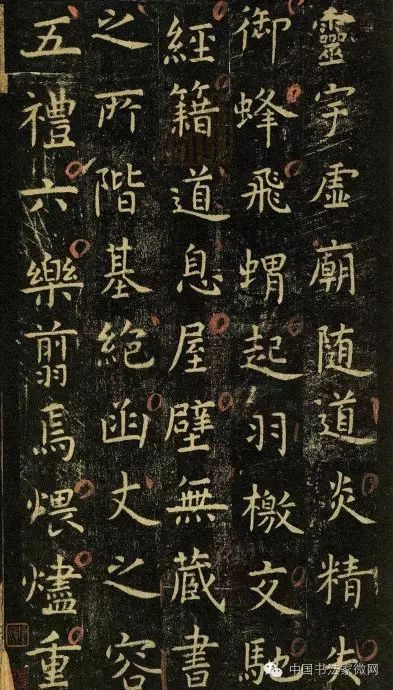 靈宇虛廟隨道炎精失
御蜂飛蝟起羽檄交馳
經籍道息屋壁無藏書
之所階基絶函丈之容
五禮六樂翦焉煨燼重
中国书法家微网